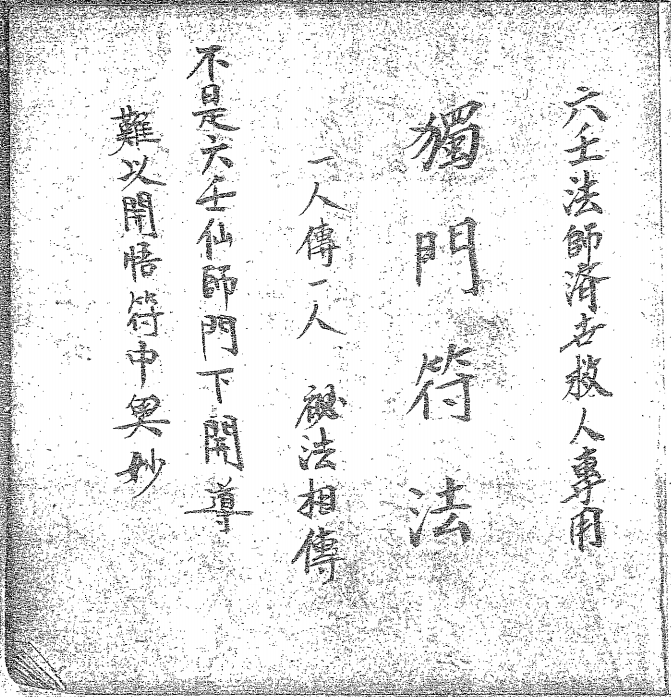 六壬法師濟世救人專用
獨門符法
一人傳一人 祕法相傳
不是六壬仙師門下開導
難以開悟符中奧妙